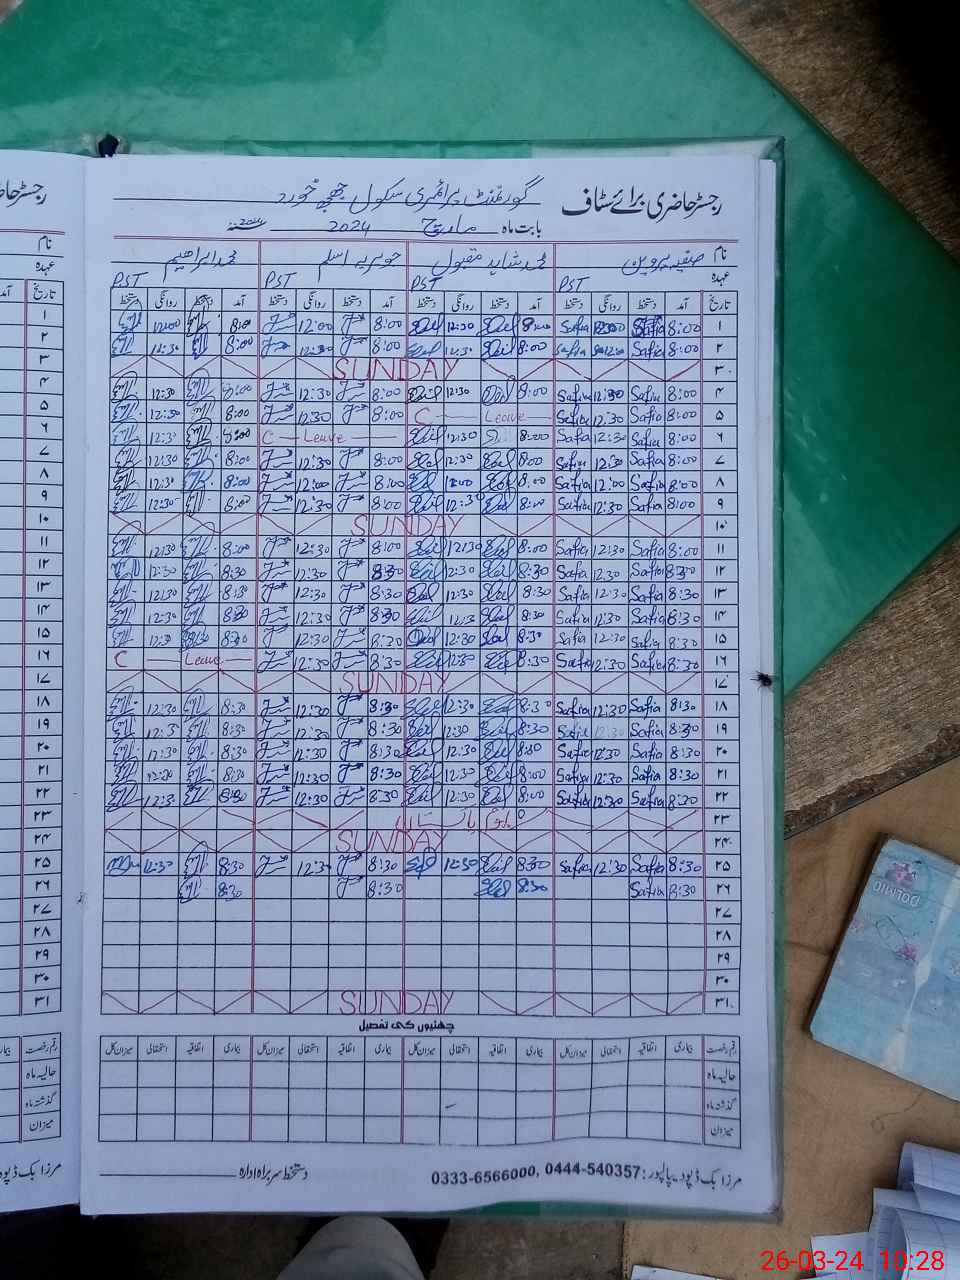 رجسٹر حاضری برائے سٹاف گورنمنٹ پرائمری سکول
بابت ماہ مارچ 2024
نام صفیہ پروین محمد شاہد مقبول جویریہ اسلم محمد ابراھیم
عہدہ PST PST PST PST
تاریخ آمد دستخط روانگی دستخط آمد دستخط روانگی دستخط آمد دستخط روانگی دستخط آمد دستخط روانگی دستخط
۱ 8:00 Safia 8:00 8:00 12:00 8:00 12:00
۲ 8:00 Safia Safia 8:00 12:30 8:00 12:30 8:00 12:30
۳ SUNDAY
۴ 8:00 Safia 12:30 Safia 8:00 12:30 8:00 12:30 8:00 12:30
۵ 8:00 Safia 12:30 Safia C Leave 8:00 12:30 8:00 12:30
۶ 8:00 Safia 12:30 Safia 8:00 12:30 C Leave 8:00 12:30
۷ 8:00 Safia 12:30 Safia 8:00 12:30 8:00 12:30 8:00 12:30
۸ 8:00 Safia 12:00 Safia 8:00 12:00 8:00 12:00 8:00 12:30
۹ 8:00 Safia 12:30 Safia 8:00 12:30 8:00 12:30 8:00 12:30
۱۰ SUNDAY
۱۱ 8:00 Safia 12:30 Safia 8:00 12:30 8:00 12:30 8:00 12:30
۱۲ 8:30 Safia 12:30 Safia 8:30 12:30 8:30 12:30 8:30 12:30
۱۳ 8:30 Safia 12:30 Safia 8:30 12:30 8:30 12:30 8:30 12:30
۱۴ 8:30 Safia 12:30 Safia 8:30 12:30 8:30 12:30 8:30 12:30
۱۵ 8:30 Safia 12:30 Safia 8:30 12:30 8:30 12:30 8:30 12:30
۱۶ 8:30 Safia 12:30 Safia 8:30 12:30 8:30 12:30 C Leave
۱۷ SUNDAY
۱۸ 8:30 Safia 12:30 Safia 8:30 12:30 8:30 12:30 8:30 12:30
۱۹ 8:30 Safia 12:30 Safia 8:30 12:30 8:30 12:30 8:30 12:30
۲۰ 8:30 Safia 12:30 Safia 8:00 12:30 8:30 12:30 8:30 12:30
۲۱ 8:30 Safia 12:30 Safia 8:00 12:30 8:30 12:30 8:30
۲۲ 8:30 Safia 12:30 Safia 8:00 12:30 8:30 12:30 8:30 12:30
۲۳ یوم پاکستان
۲۴ SUNDAY
۲۵ 8:30 Safia 12:30 Safia 8:30 12:30 8:30 12:30 8:30 12:30
۲۶ 8:30 Safia 8:30 8:30 8:30
۲۷
۲۸
۲۹
۳۰
۳۱ SUNDAY
چھٹیوں کی تفصیل
رقم رخصت بیماری اتفاقیہ استحقاقی میزان کل بیماری اتفاقیہ استحقاقی میزان کل بیماری اتفاقیہ استحقاقی میزان کل بیماری اتفاقیہ استحقاقی میزان کل
حالیہ ماہ
گذشتہ ماہ
میزان
مرزا بک ڈپو دیپالپور: 0444-540357 ,0333-6566000 دستخط سربراہ ادارہ
DOLMIO
26-03-24 10:28